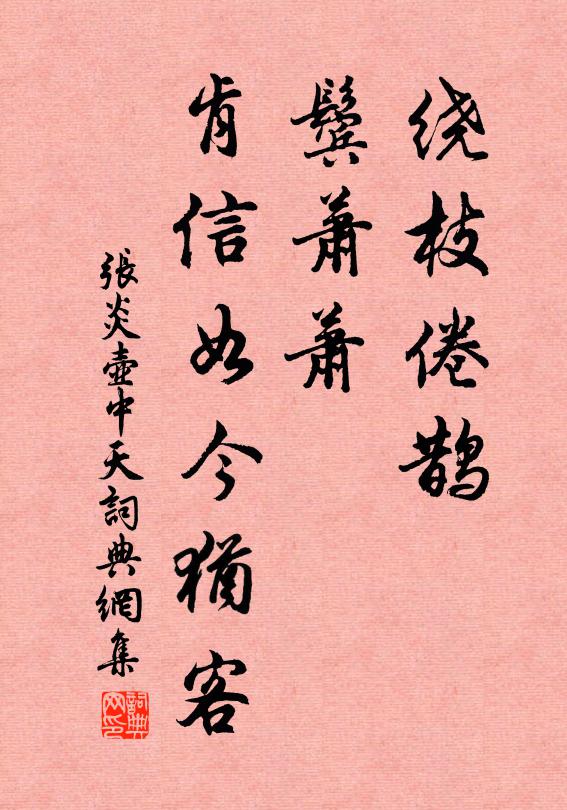 绕枝倦鹊
鬓萧萧
肯信如今犹客
張炎壺中天詞典網集
詞典网印